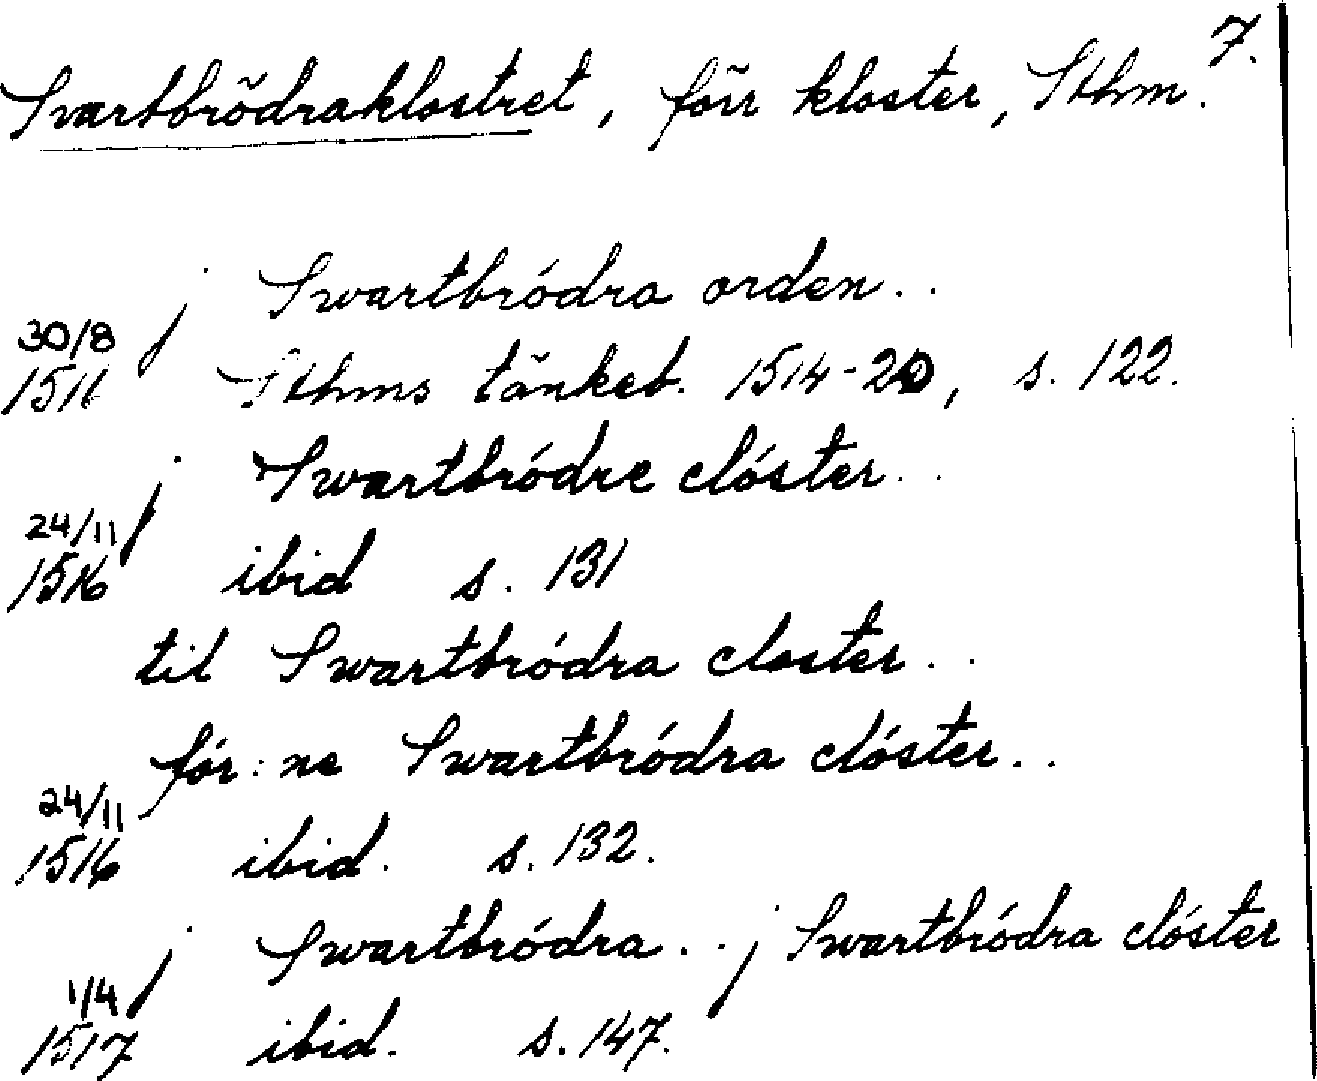 7.
Svartbrödraklostret, förr kloster, Sthm.
j Swartbródra orden..
30/8
1516 Sthms tänkeb. 1514-20, s. 122.
j Swartbródre clóster..
24/11
1516 ibid s. 131
til Swartbródra closter..
fór:ne Swartbródra clóster..
24/11
1516 ibid. s. 132.
j Swartbródra.. j Swartbródra clóster
1/4
1517 ibid. s. 147.